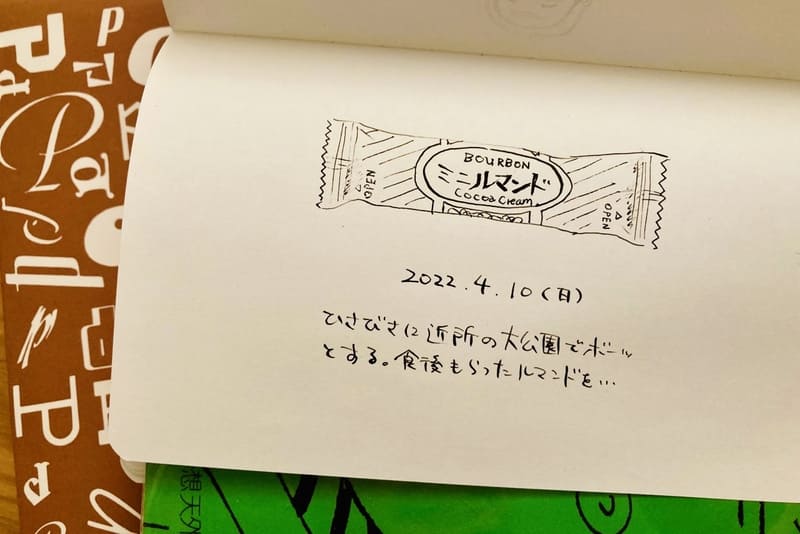 BOURBON
ミニルマンド
Cocoa Cream
OPEN
OPEN
2022.4.10(日)
ひさびさに近所の大公園でボーッ
とする。食後もらったルマンドを…
想天外